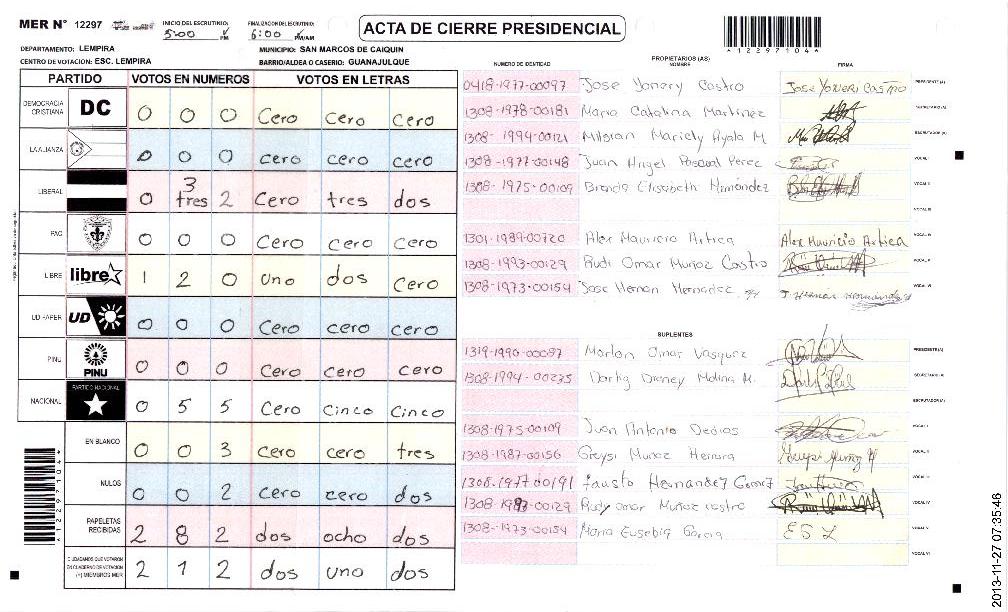 MER N° 12297
INICIO DEL ESCRUTINIO: 5:00 PM
FINALIZACION DEL ESCRUTINIO: 6:00 PM/AM
ACTA DE CIERRE PRESIDENCIAL
*12297104*
DEPARTAMENTO: LEMPIRA
MUNICIPIO: SAN MARCOS DE CAIQUIN
CENTRO DE VOTACION: ESC. LEMPIRA
BARRIO/ALDEA O CASERIO: GUANAJULQUE
PARTIDO VOTOS EN NUMEROS VOTOS EN LETRAS
DEMOCRACIA CRISTIANA DC 0 0 0 Cero Cero Cero
LA ALIANZA 0 0 0 cero cero cero
LIBERAL 0 3 tres 2 Cero tres dos
PAC 0 0 0 Cero Cero Cero
LIBRE libre 1 2 0 uno dos Cero
UD FAPER UD 0 0 0 Cero cero cero
PINU PINU 0 0 0 Cero Cero cero
NACIONAL PARTIDO NACIONAL 0 5 5 Cero Cinco Cinco
EN BLANCO 0 0 3 cero cero tres
NULOS 0 0 2 cero cero dos
PAPELETAS RECIBIDAS 2 8 2 dos ocho dos
CIUDADANOS QUE VOTARON EN CUADERNO DE VOTACION (+) MIEMBROS MER 2 1 2 dos uno dos
*12297104*
PROPIETARIOS (AS)
NUMERO DE IDENTIDAD NOMBRE FIRMA
0418-1977-00097 Jose Yonery Castro Jose Yoneri Castro PRESIDENTE (A)
1308-1978-00181 Maria Catalina Martinez SECRETARIO (A)
1308-1994-00121 Milgian Mariely Ayala M ESCRUTADOR (A)
1308-1977-00148 Juan Angel Pascual Perez VOCAL I
1308-1975-00109 Brenda Elisabeth Hernández VOCAL II
VOCAL III
1301-1989-00720 Alex Mauricio Artica Alex Mauricio Artica VOCAL IV
1308-1993-00129 Rudi Omar Muñoz Castro VOCAL V
1308-1973-00154 Jose Hernan Hernadez VOCAL VI
SUPLENTES
1319-1990-00087 Marlon Omar Vasquez PRESIDENTE (A)
1308-1994-00235 Darky Disney Molina M. SECRETARIO (A)
ESCRUTADOR (A)
1308-1975-00109 Juan Antonio VOCAL I
1308-1987-00156 Greysi Munoz Herrera VOCAL II
1308-1977-00191 Fausto Hernandez Gomez VOCAL III
1308-1993-00129 Rudy omar Muñoz castro VOCAL IV
1308-1973-00154 Maria Eusebia Garcia VOCAL V
VOCAL VI
2013-11-27 07:35:46